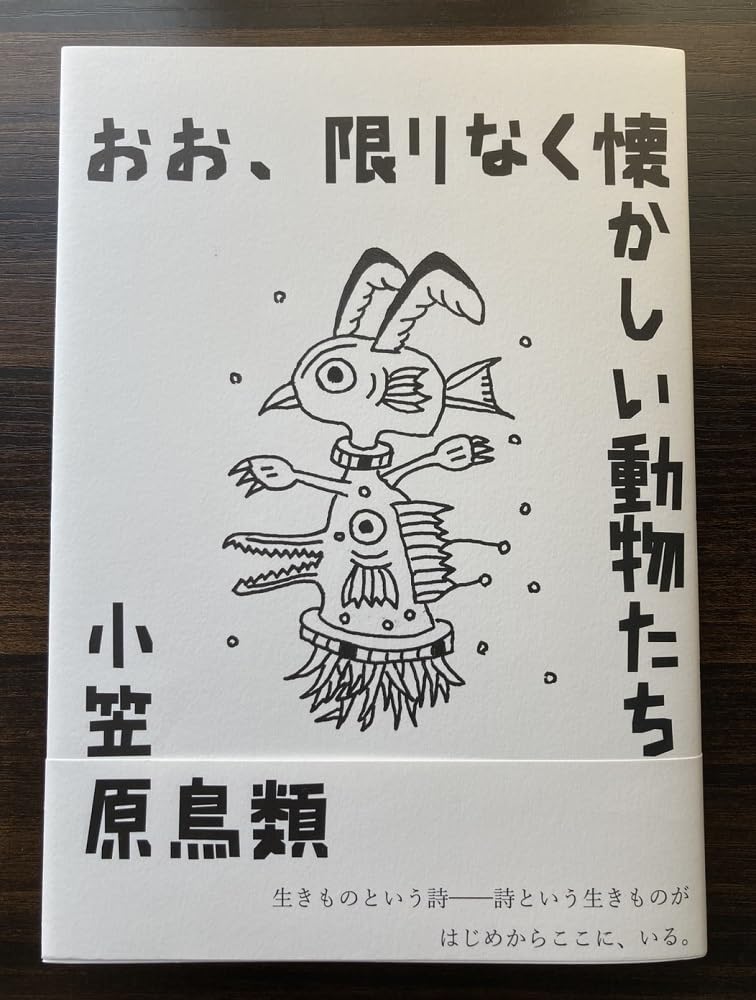 おお、限りなく懐かしい動物たち
小笠原鳥類
生きものという詩――詩という生きものが
はじめからここに、いる。